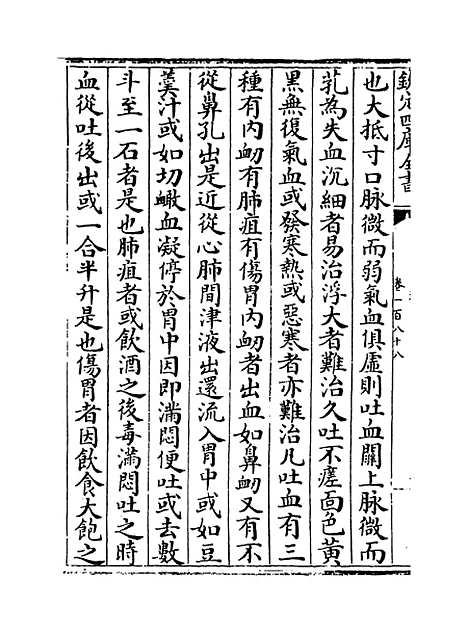 欽定四庫全書
卷一百八十八
也大抵寸口脉微而弱氣血俱虛則吐血關上脉微而
芤為失血沉細者易治浮大者難治久吐不瘥面色黄
黑無復氣血或發寒熱或惡寒者亦難治凡吐血有三
種有内衂有肺疽有傷胃内衂者出血如鼻衂又有不
從鼻孔出是近從心肺間津液出還流入胃中或如豆
羮汁或如切𧖻血凝停於胃中因即滿悶便吐或去數
斗至一石者是也肺疽者或飲酒之後毒滿悶吐之時
血從吐後出或一合半升是也傷胃者因飲食大飽之